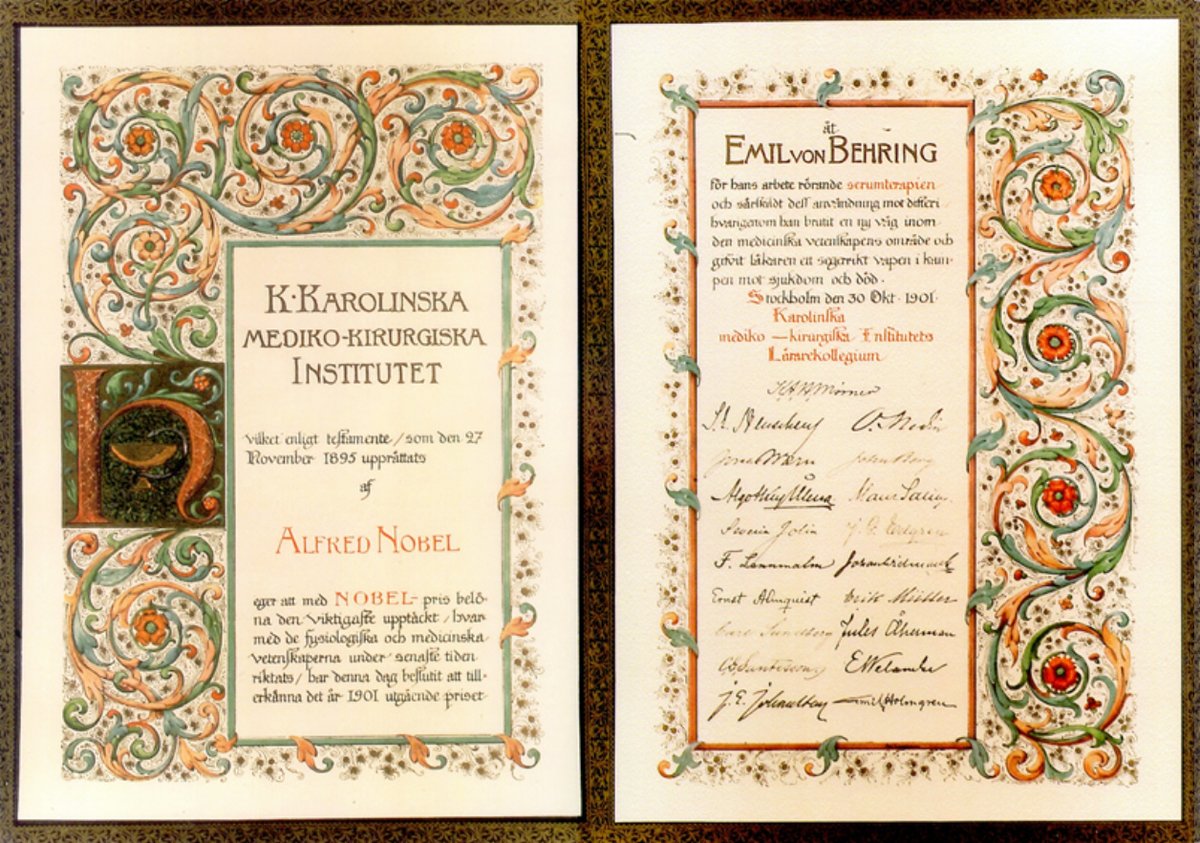 K. KAROLINSKA
MEDIKO-KIRURGISKA
INSTITUTET
H
vilket enligt testamente, som den 27
November 1895 upprättats
af
ALFRED NOBEL
eger att med NOBEL-pris belö-
na den viktigaste upptäckt, hvar-
med de fysiologiska och medicinska
vetenskaperna under senaste tiden
riktats, har denna dag beslutit att till-
erkänna det år 1901 utgående priset
åt
EMIL VON BEHRING
för hans arbete rörande serumterapien
och särskildt dess användning mot difteri
hvarigenom han brutit en ny väg inom
den medicinska vetenskapens område och
gifvit läkaren ett segerrikt vapen i kam-
pen mot sjukdom och död.
Stockholm den 30 Okt. 1901.
Karolinska
mediko-kirurgiska Institutets
Lärarekollegium
K.A.H. Mörner
O. Medin
John Berg
Severin Jolin J. G. Edgren
F. Lennmalm
Ernst Almquist Erik Müller
Carl Sundberg Jules Åkerman
C.G. Santesson E. Welander
J.E. Johansson Emil Holmgren